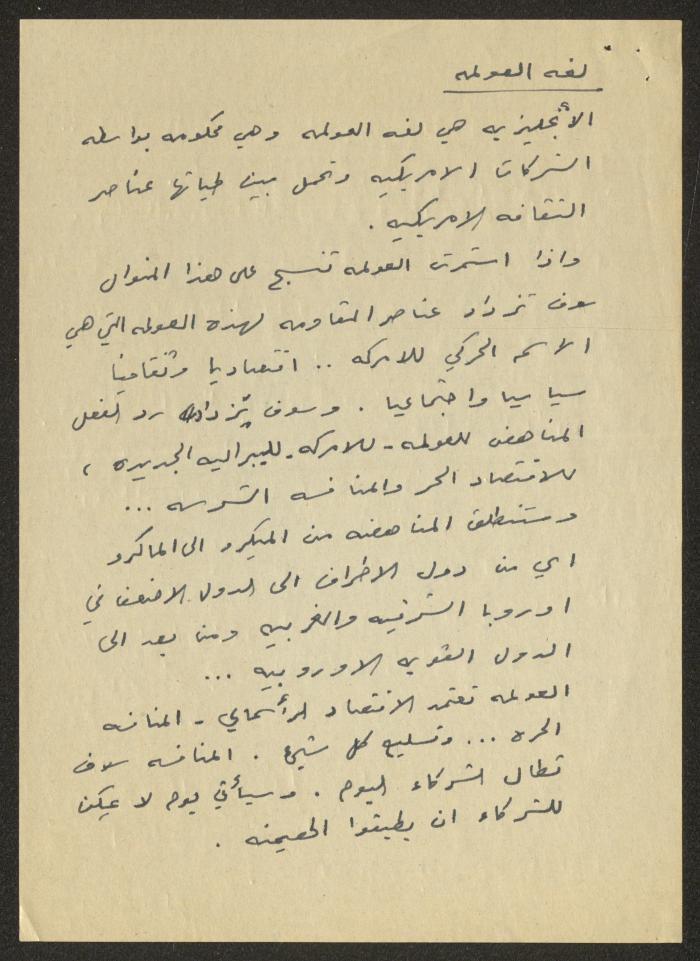 لغه العولمه
الأنجليزيه هي لغه العولمه وهي محكومه بواسطه
الشركات الامريكيه وتحمل بين طياتها عناصر
الثقافه الامريكيه .
واذا استمرت العولمه تنسج على هذا المنوال
سوف تزداد عناصر المقاومه لهذه العولمه التي هي
الاسم الحركي للامركه .. اقتصاديا وثقافياً
سياسيا واجتماعيا . وسوف يزداد رد الفعل
المناهض للعولمه - للامركه - لليبراليه الجديده ،
للاقتصاد الحر والمنافسه الشرسه ...
وستنطلق المناهضه من الميكرو الى الماكرو
اي من دول الاطراف الى الدول الاضعف في
اوروبا الشرقيه والغربيه ومن بعد الى
الدول القويه الاوروبيه ...
العولمه تعتمد الاقتصاد الرأسمالي - المنافسه
الحره ... وتسليع كل شيئ . المنافسه سوف
تطال شركاء اليوم . وسيأتي يوم لا يمكن
للشركاء ان يطيقوا الهيمنه .